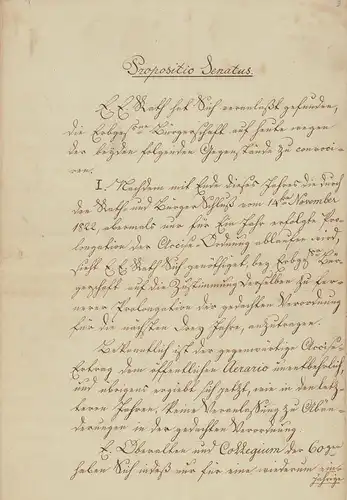 Propositio Senatus.
E. E. Rath hat Sich veranlaßt gefunden,
die Erbges. Bürgerschaft auf heute wegen
der beyden folgenden Gegenstände zu convoci-
ren.
I. Nachdem mit Ende dieses Jahres die durch
den Rath und Bürger Schluß vom 14ten November
1822, abermals nur für Ein Jahr erfolgte Pro-
longation der Accise-Ordnung ablaufen wird,
sieht E. E. Rath Sich genöthigt, bey Erbges. Bür-
gerschaft auf die Zustimmung derselben zu fer-
nerer Prolongation der gedachten Verordnung
für die nächsten Drey Jahre, anzutragen.
Bekanntlich ist der gegenwärtige Accise-
Ertrag dem öffentlichen Aerario unentbehrlich,
und übrigens ergiebt sich jetzt, wie in den letz-
teren Jahren, keine Veranlassung zu Abän-
derungen in der gedachten Verordnung.
E. Oberalten und Collegium der 60ger
haben Sich indeß nur für eine wiederum ein-
jährige